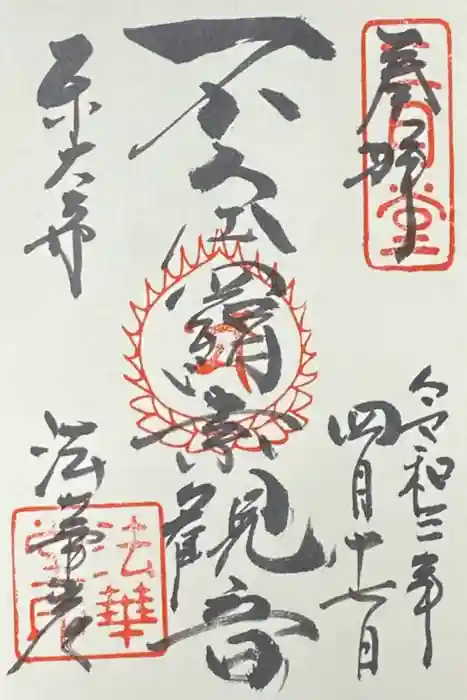 奉拝
三月堂
令和三年
四月十七日
不空羂索観音
東大寺
法華堂
法華
堂印